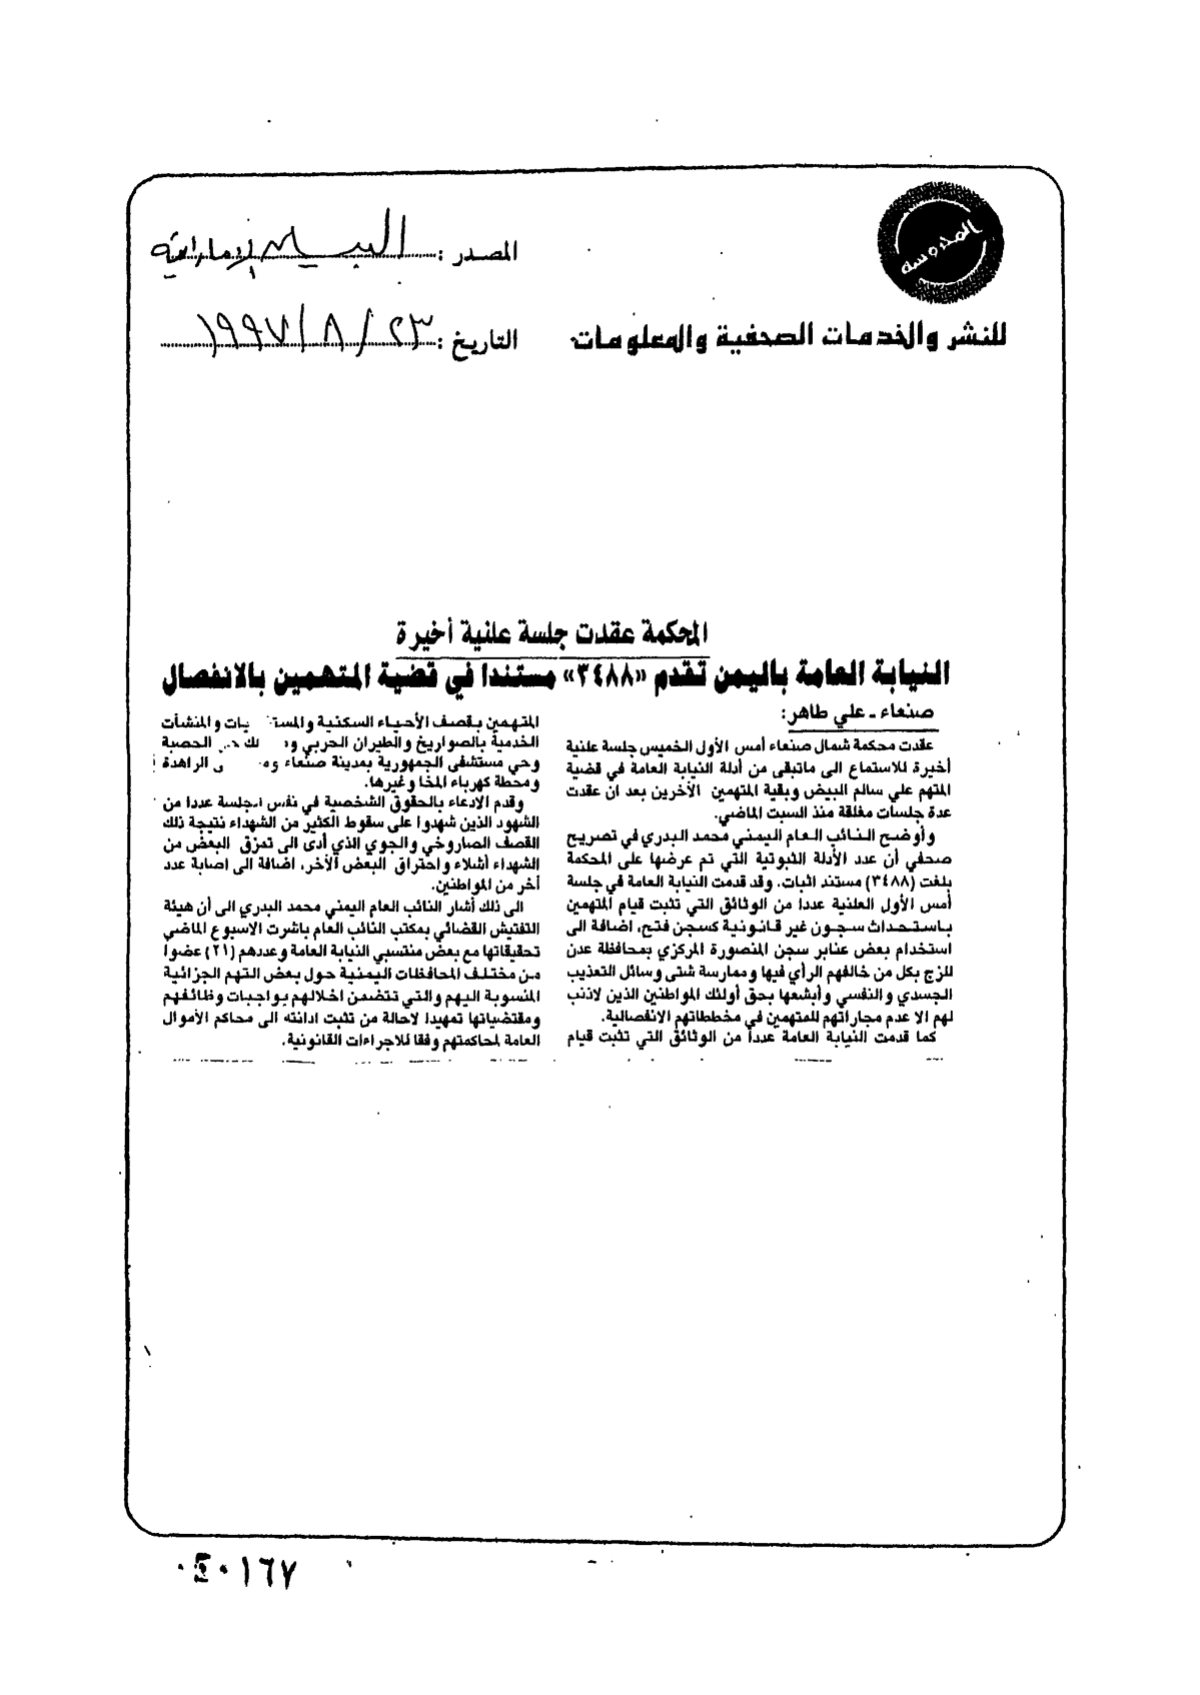 المحروسة
المصدر : البيان الإماراتية
للنشر والخدمات الصحفية والمعلومات
التاريخ : ٢٣ / ٨ / ١٩٩٧
المحكمة عقدت جلسة علنية أخيرة
النيابة العامة باليمن تقدم «٣٤٨٨» مستندا في قضية المتهمين بالانفصال
صنعاء ـ علي طاهر:
عقدت محكمة شمال صنعاء أمس الأول الخميس جلسة علنية
أخيرة للاستماع الى ماتبقى من أدلة النيابة العامة في قضية
المتهم علي سالم البيض وبقية المتهمين الآخرين بعد ان عقدت
عدة جلسات مغلقة منذ السبت الماضي.
وأوضح النائب العام اليمني محمد البدري في تصريح
صحفي أن عدد الأدلة الثبوتية التي تم عرضها على المحكمة
بلغت (٣٤٨٨) مستند اثبات. وقد قدمت النيابة العامة في جلسة
أمس الأول العلنية عددا من الوثائق التي تثبت قيام المتهمين
باستحداث سجون غير قانونية كسجن فتح، اضافة الى
استخدام بعض عنابر سجن المنصورة المركزي بمحافظة عدن
للزج بكل من خالفهم الرأي فيها وممارسة شتى وسائل التعذيب
الجسدي والنفسي وأبشعها بحق أولئك المواطنين الذين لاذنب
لهم الا عدم مجاراتهم للمتهمين في مخططاتهم الانفصالية.
كما قدمت النيابة العامة عدداً من الوثائق التي تثبت قيام
المتهمين بقصف الأحياء السكنية والمستـ يات والمنشآت
الخدمية بالصواريخ والطيران الحربي و لك الحصبة
وحي مستشفى الجمهورية بمدينة صنعاء و الراهدة
ومحطة كهرباء المخا وغيرها.
وقدم الادعاء بالحقوق الشخصية في نفس الجلسة عددا من
الشهود الذين شهدوا على سقوط الكثير من الشهداء نتيجة ذلك
القصف الصاروخي والجوي الذي أدى الى تمزق البعض من
الشهداء أشلاء واحتراق البعض الآخر، اضافة الى اصابة عدد
آخر من المواطنين.
الى ذلك أشار النائب العام اليمني محمد البدري الى أن هيئة
التفتيش القضائي بمكتب النائب العام باشرت الاسبوع الماضي
تحقيقاتها مع بعض منتسبي النيابة العامة وعددهم (٢١) عضوا
من مختلف المحافظات اليمنية حول بعض التهم الجزائية
المنسوبة اليهم والتي تتضمن اخلالهم بواجبات وظائفهم
ومقتضياتها تمهيدا لاحالة من تثبت ادانته الى محاكم الأموال
العامة لمحاكمتهم وفقا للاجراءات القانونية.
١٦٧